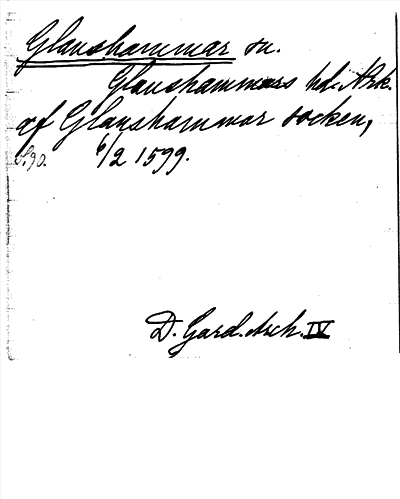 Glanshammar sn.
Glanshammars hd. Nrk.
af Glanshammar socken,
S.90. 6/2 1599.
D. Gard. Ark. IV